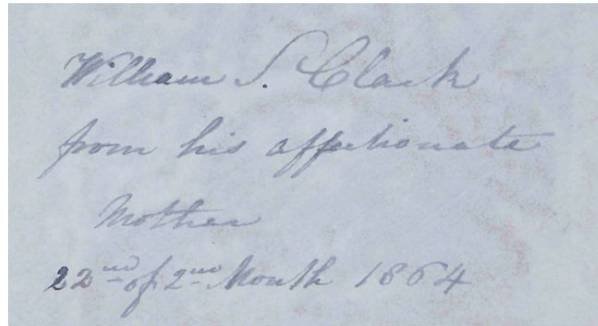 William S. Clark
from his affectionate
Mother
22nd of 2nd Month 1864